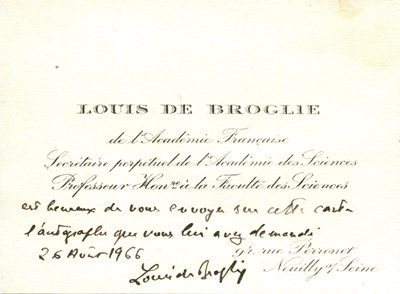 LOUIS DE BROGLIE
de l'Académie Française
Secrétaire perpétuel de l'Académie des Sciences
Professeur Honre à la Faculté des Sciences
est heureux de vous envoyer sur cette carte
l'autographe que vous lui avez demandé
26 Août 1966
94, rue Perronet
Louis de Broglie
Neuilly s/ Seine